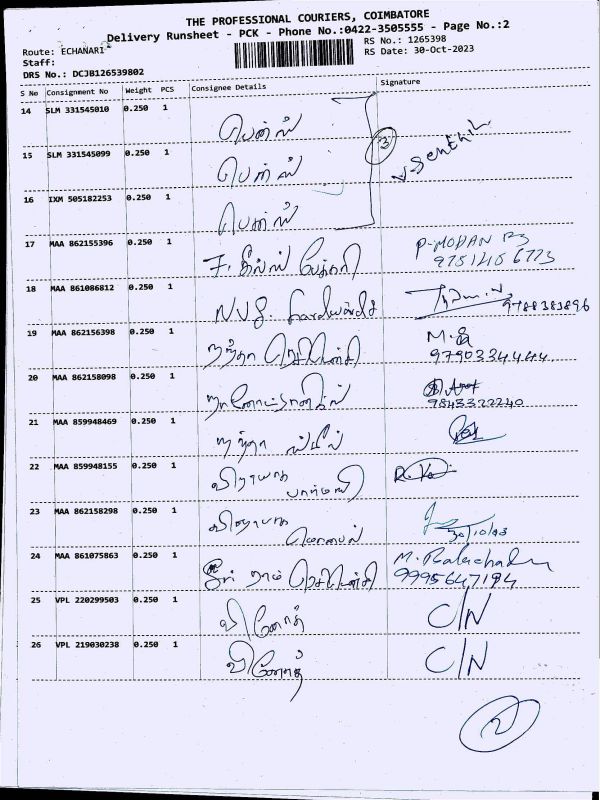 THE PROFESSIONAL COURIERS, COIMBATORE
Delivery Runsheet - PCK - Phone No.:0422-3505555 - Page No.:2
Route: ECHANARI
RS No.: 1265398
Staff:
RS Date: 30-Oct-2023
DRS No.: DCJB126539802
S No Consignment No Weight PCS Consignee Details Signature
14 SLM 331545010 0.250 1
15 SLM 331545099 0.250 1 3 V. Senthil
16 IXM 505182253 0.250 1
17 MAA 862155396 0.250 1 P. MOHAN
18 MAA 861086812 0.250 1 NVS. hardwards 9788383896
19 MAA 862156398 0.250 1 நந்தா ஏஜென்சி M.
9790334444
20 MAA 862158098 0.250 1
9843322240
21 MAA 859948469 0.250 1 நந்தா
22 MAA 859948155 0.250 1 விநாயகா
பார்மஸி
23 MAA 862158298 0.250 1 விநாயகா
மொபைல் 30/10/23
24 MAA 861075863 0.250 1 ஸ்ரீ ராம் ஏஜென்சி M. Balachand
9995647194
25 VPL 220299503 0.250 1 வினோத் C/N
26 VPL 219030238 0.250 1 வினோத் C/N